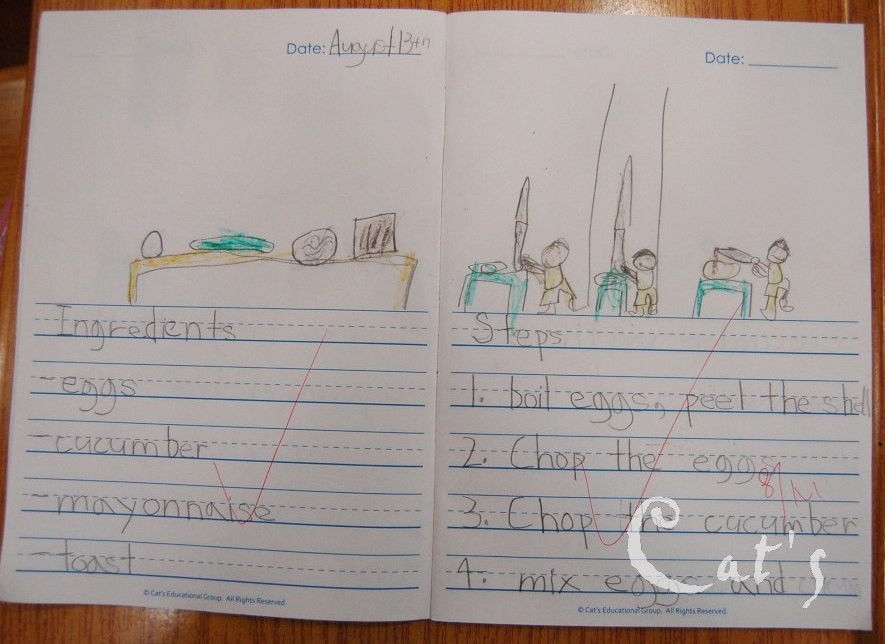 Date: August 13th
Ingredients
-eggs
-cucumber
-mayonnaise
-toast
© Cat's Educational Group. All Rights Reserved.
Date:
Steps
1. boil eggs, peel the shell
2. Chop the eggs
3. Chop the cucumber
4. mix eggs and
© Cat's Educational Group. All Rights Reserved.
Cat's